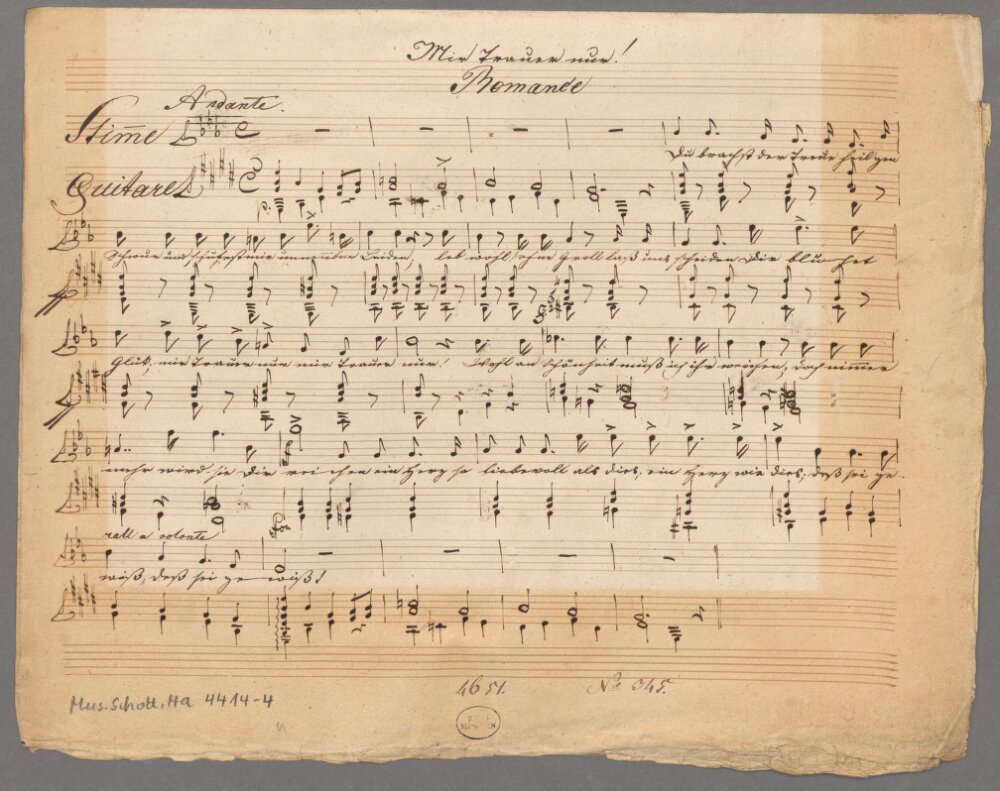 Mir Trauer nur!
Romance
Andante.
Stim̄e
Du brachst der Treue heilgen
Guitare
Schwur und schufest mir unnennbar Leiden, leb wohl, ohne Groll laß uns scheiden Dir blühet
Glük, mir Trauer nur mir Trauer nur! Wohl an Schönheit muß ich ihr weichen, doch nimmer
mehr wird sie Dir reichen ein Herz so liebevoll als dies, ein Herz wie dies, daß sei ge-
rall a volonte
wiß, daß sei gewiß!
4651. No 345.
Mus.Schott.Ha 4414-4